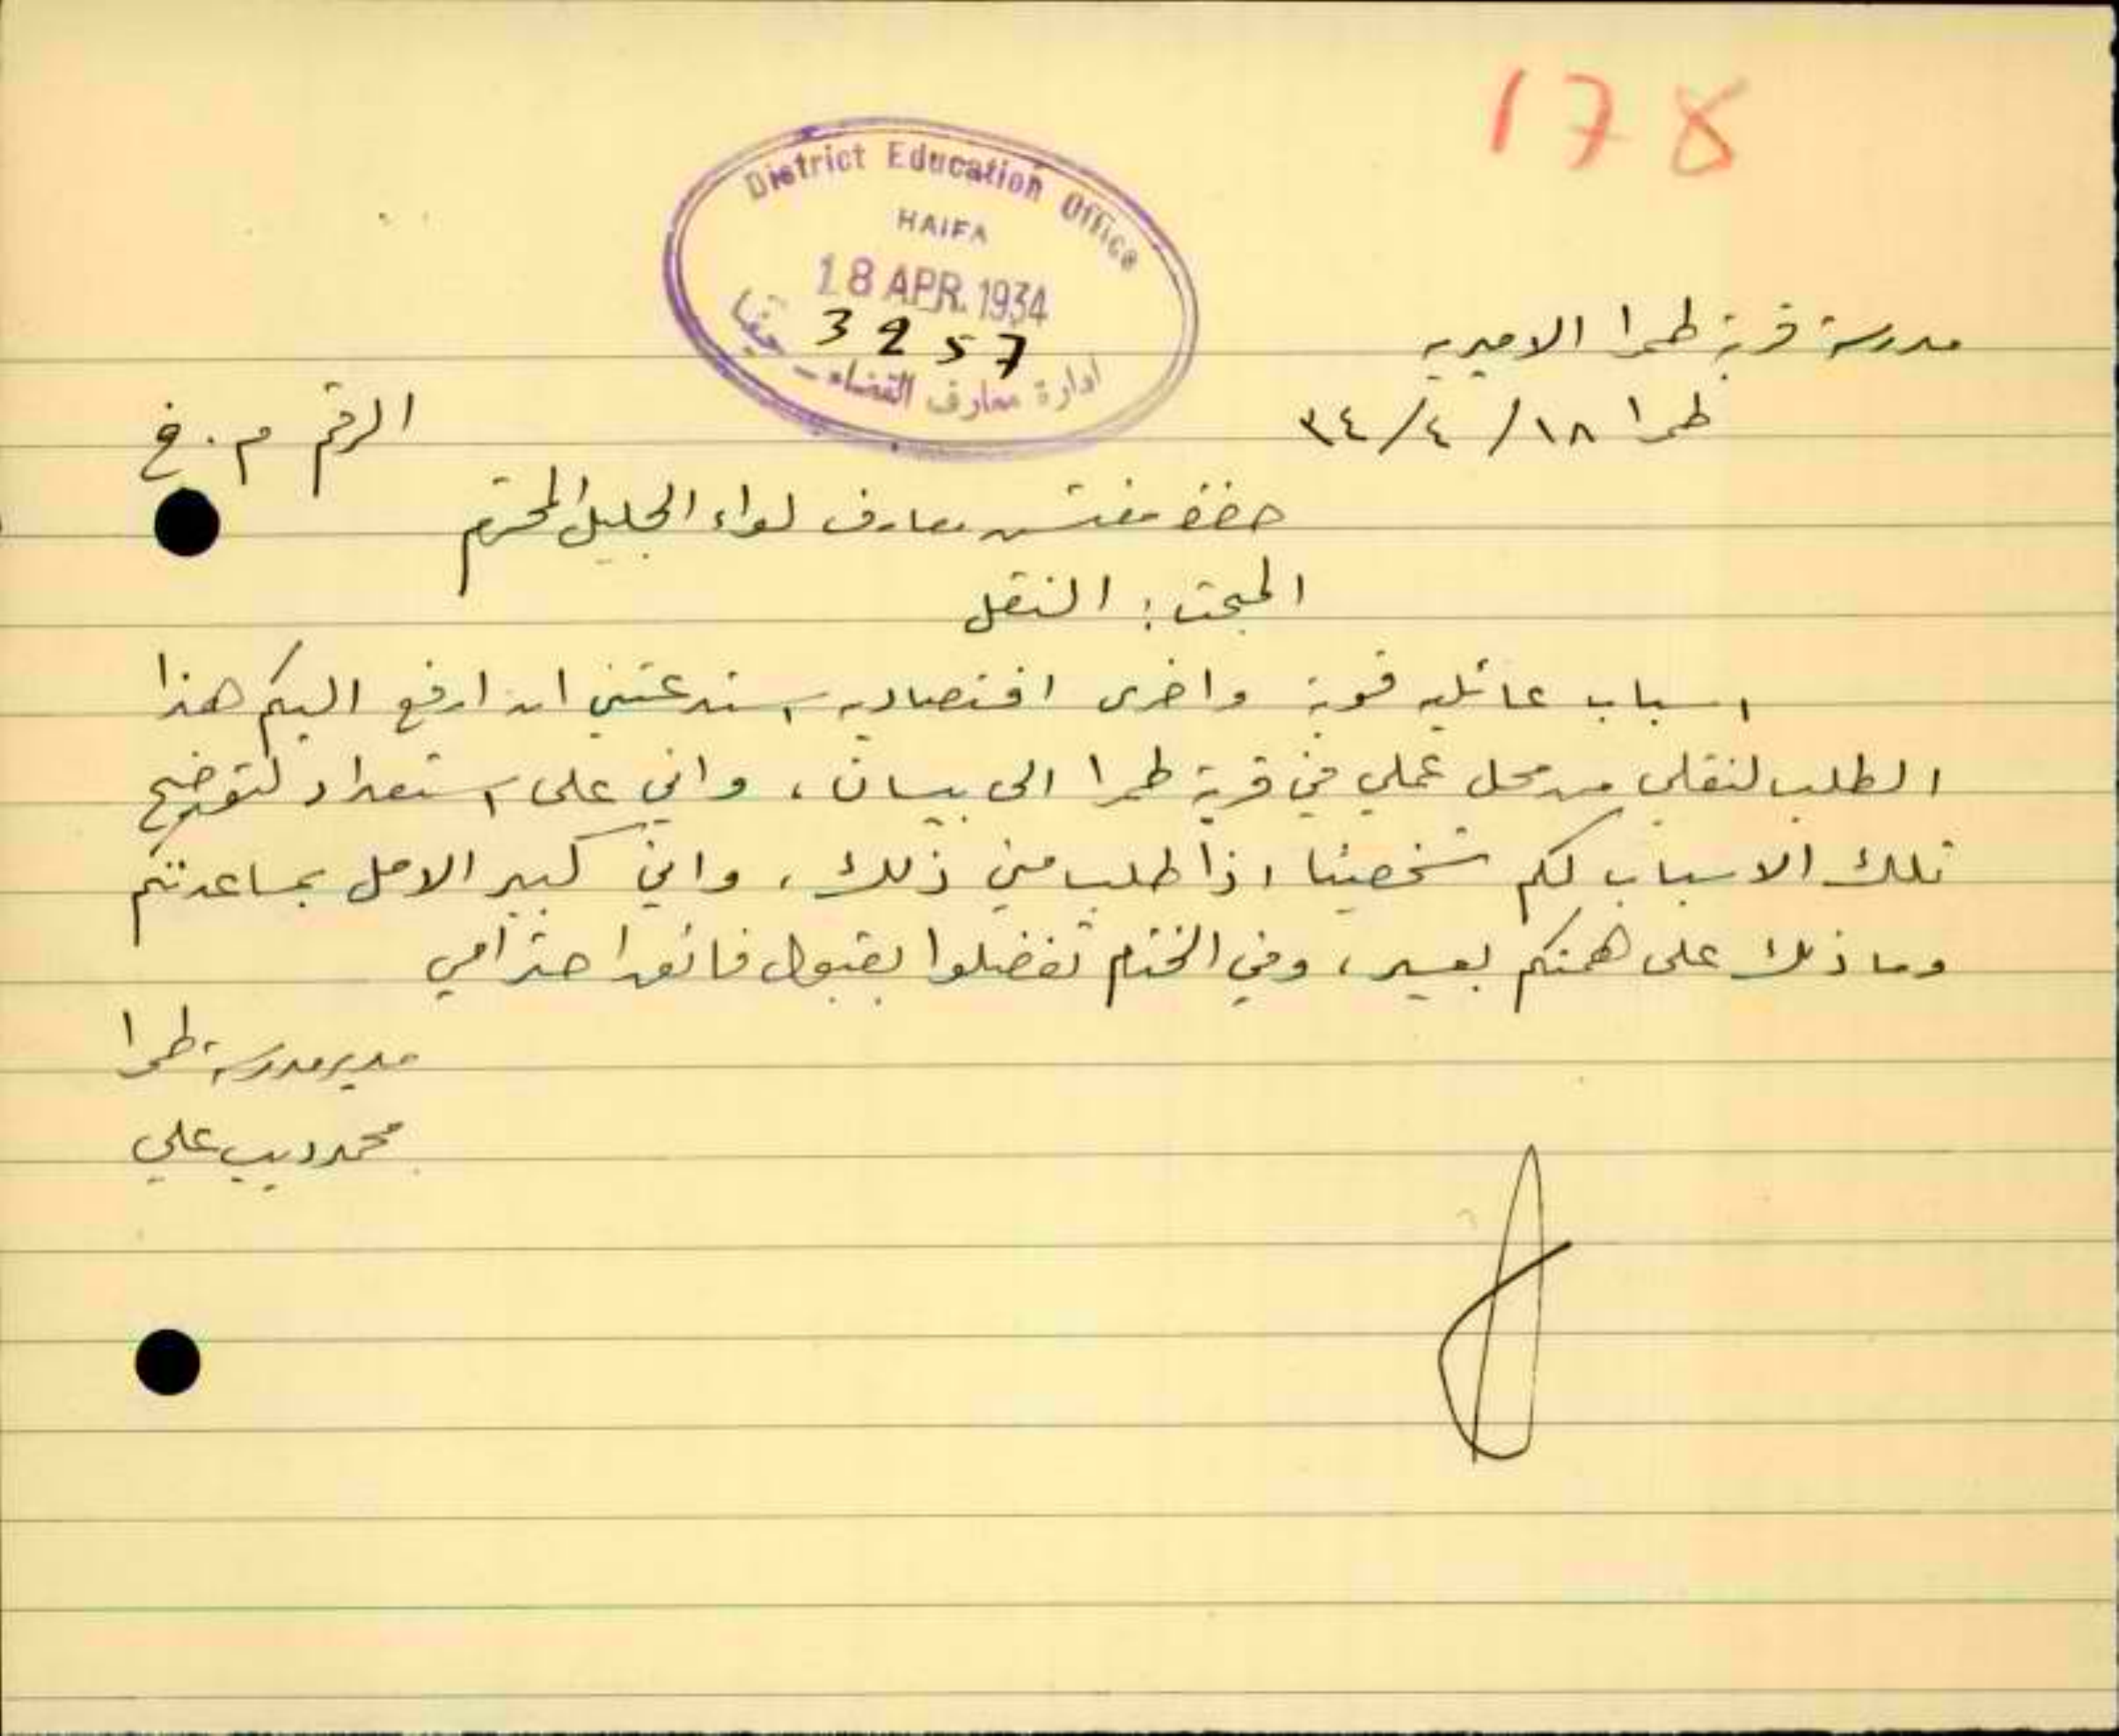 178
District Education Office
HAIFA
18 APR. 1934
3257
ادارة معارف القضاء - حيفا
مدرسة قرية طمرا الاميريه
طمرا ١٨/٤/٣٤
الرقم م. خ
حضرة مفتش معارف لواء الجليل المحترم
المبحث: النقل
اسباب عائليه قوية واخرى اقتصاديه استدعتني ان ارفع اليكم هذا
الطلب لنقلي من محل عملي في قرية طمرا الى بيسان، واني على استعداد لتوضيح
تلك الاسباب لكم شخصيًا اذا طلب مني ذلك، واني كبير الامل بمساعدتكم
وما ذلك على همتكم بعسير، وفي الختام تفضلوا بقبول فائق احترامي
مدير مدرسة طمرا
محمد ديب علي